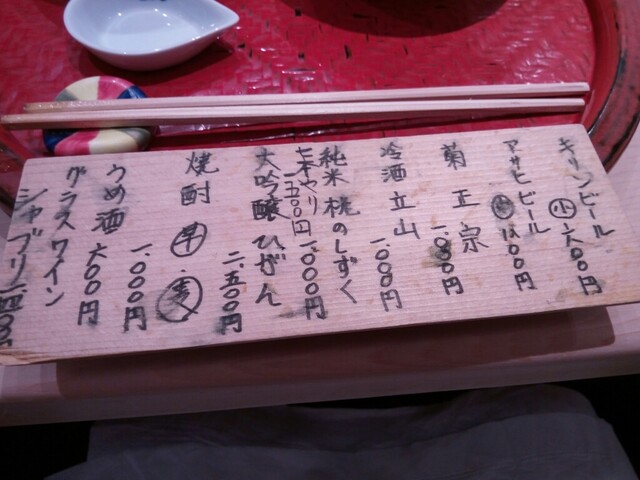 キリンビール ㋛ 六〇〇円
アサヒビール ㊥ 八〇〇円
菊正宗 一、〇〇〇円
冷酒 立山 一、〇〇〇円
純米 桃のしずく 一、〇〇〇円
七本やり 一、五〇〇円
大吟醸 ひがん 二、五〇〇円
焼酎 芋・麦 一、〇〇〇円
うめ酒 六〇〇円
グラスワイン
シャブリ